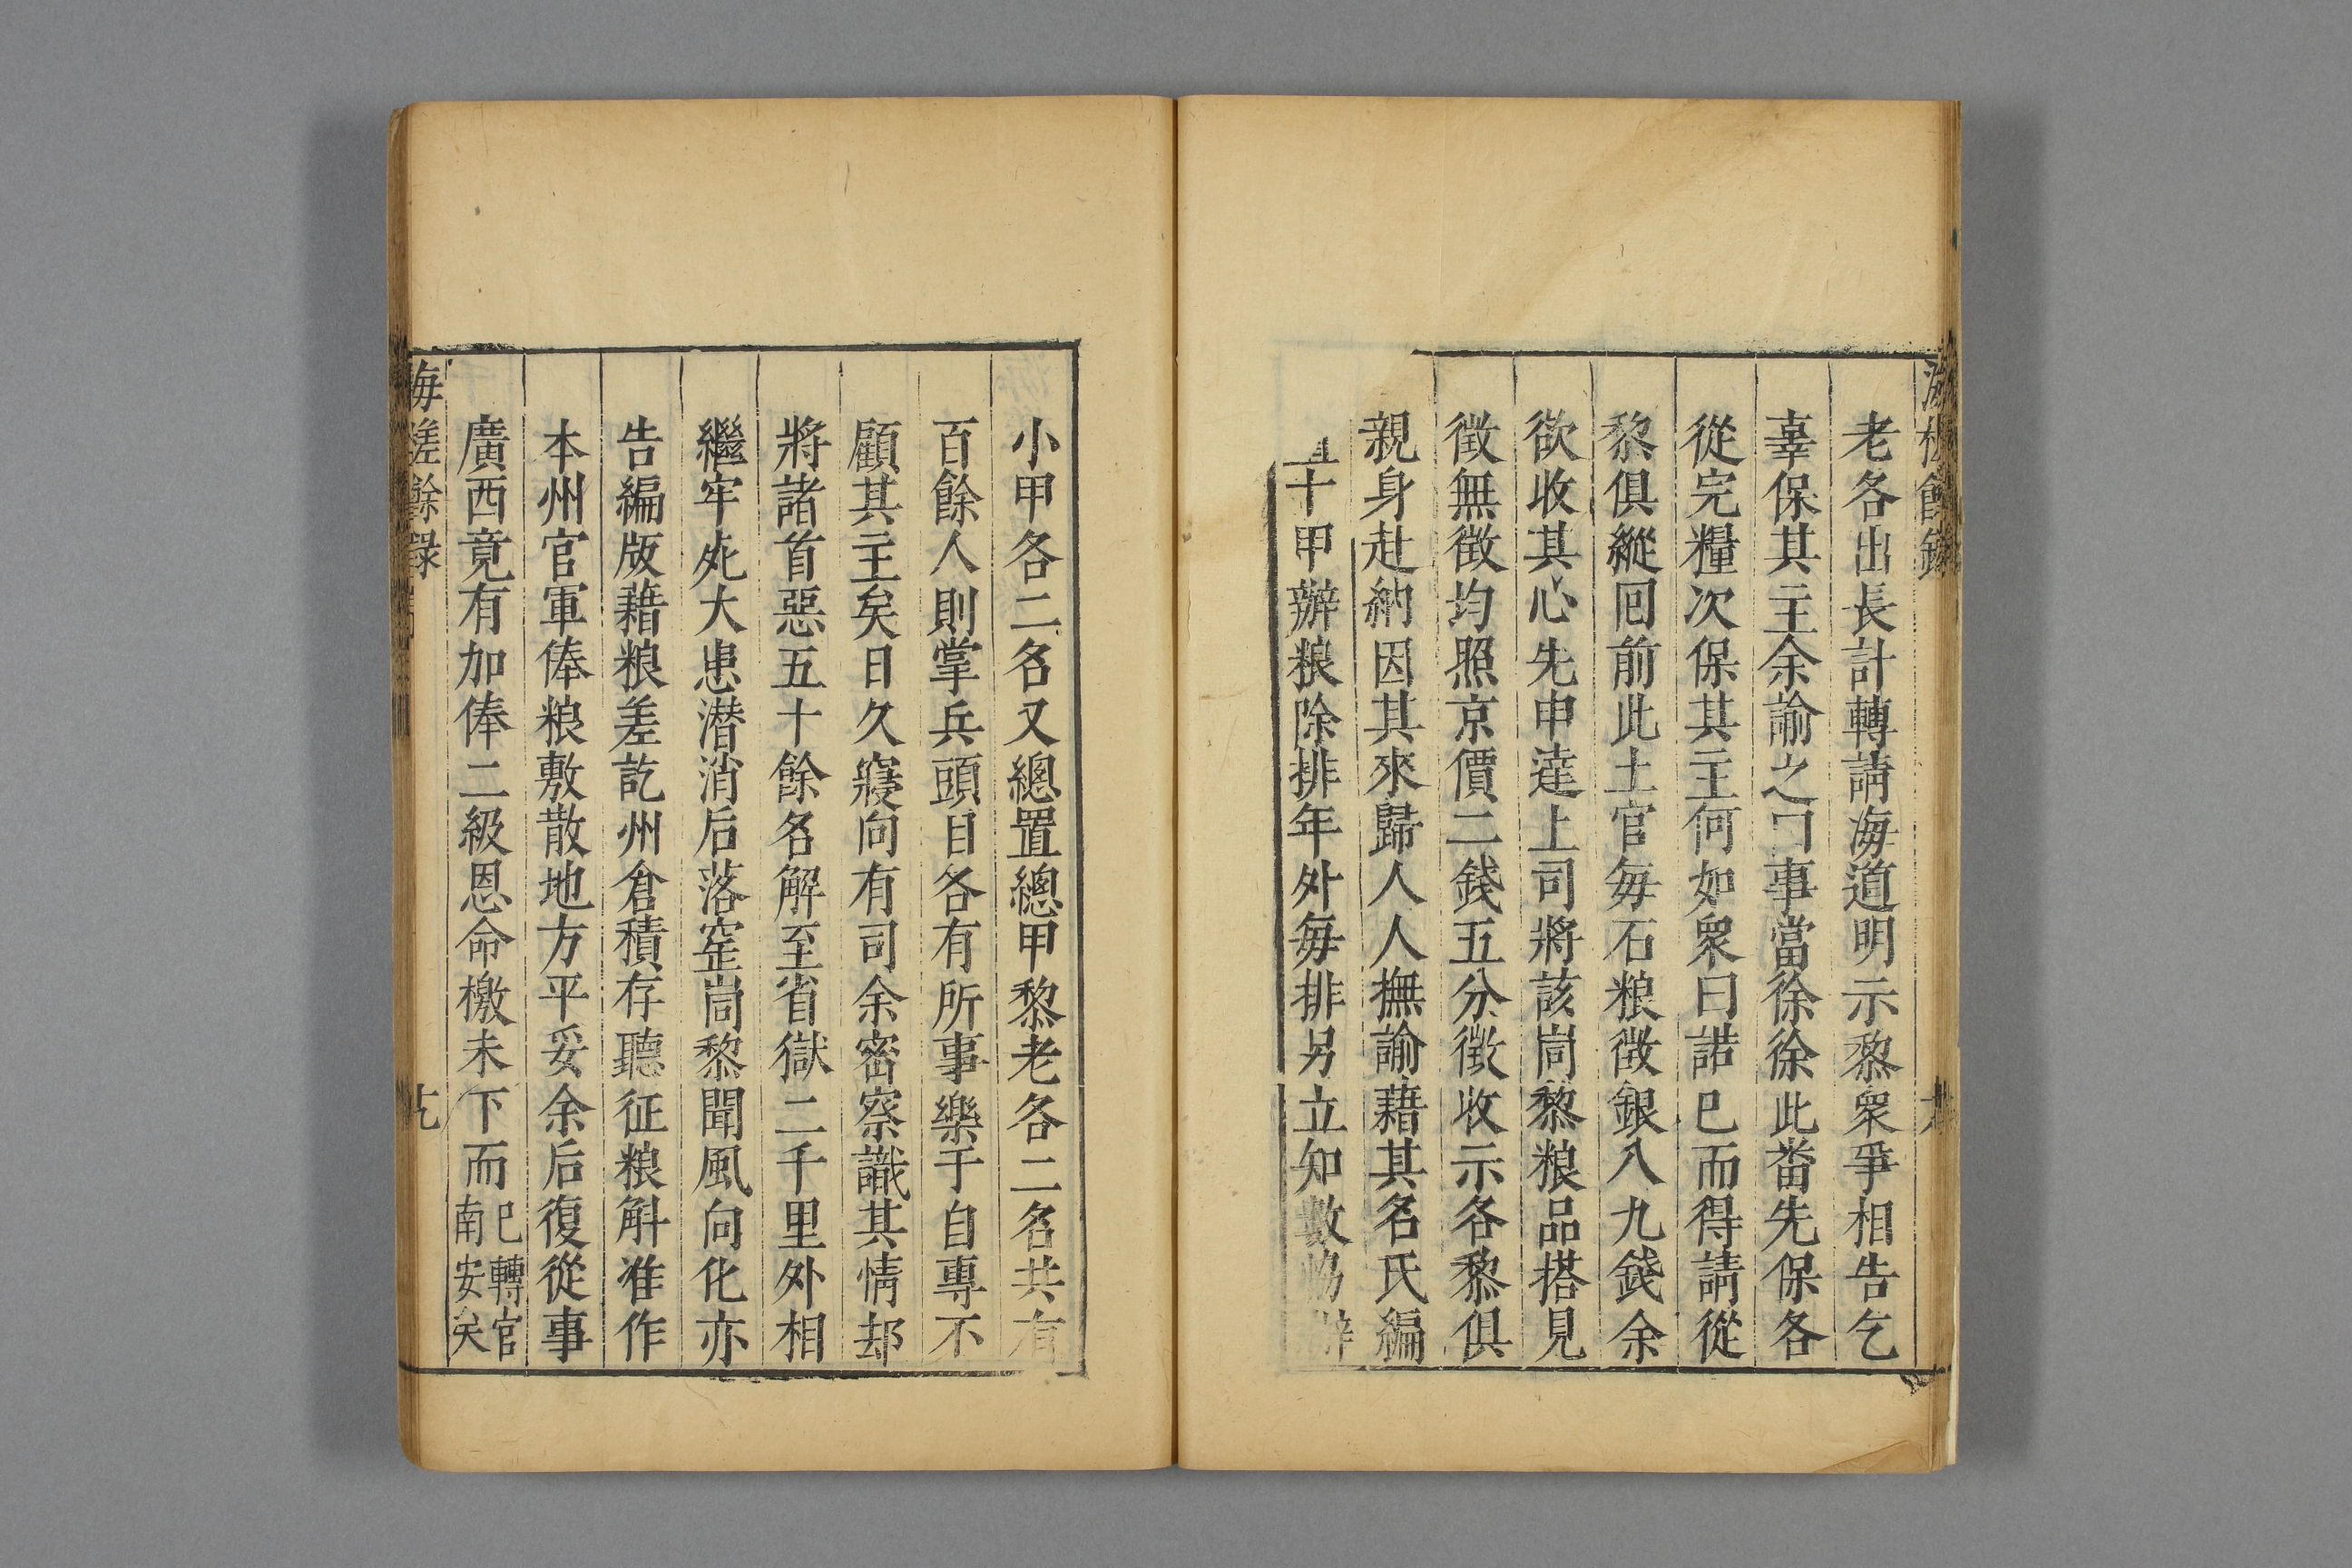 老各出長計轉請海道明示黎衆爭相告乞
辜保其主余諭之曰事當徐徐此畨先保各
從完糧次保其主何如衆曰諾已而得請從
黎俱縱囘前此土官每石粮徴銀八九錢余
欲收其心先申達上司將該峝黎粮品搭見
徴無徴均照京價二錢五分徴收示各黎俱
親身赴納因其來歸人人撫諭藉其名氏編
十甲辦粮除排年外每排另立知數協辦
小甲各二名又總置總甲黎老各二名共有
百餘人則掌兵頭目各有所事樂于自專不
顧其主矣日久寢向有司余密察識其情却
將諸首惡五十餘名解至省獄二千里外相
繼牢死大患潜消后落窰峝黎聞風向化亦
告編版藉粮差訖州倉積存聽征粮斛准作
本州官軍俸粮敷散地方平妥余后復從事
廣西竟有加俸二級恩命檄未下而已轉官南安矣
海槎餘録